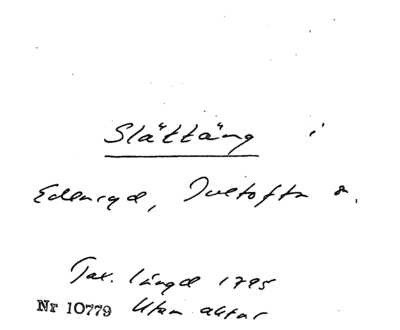 Slättäng i
Edenryd, Ivetofta s.
Tax. längd 1795
Nr 10779 Utan aktnr